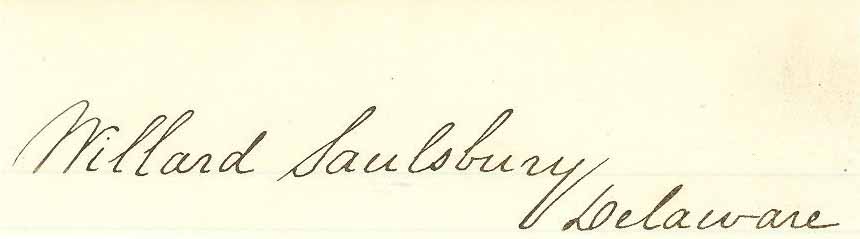 Willard Saulsbury
Delaware